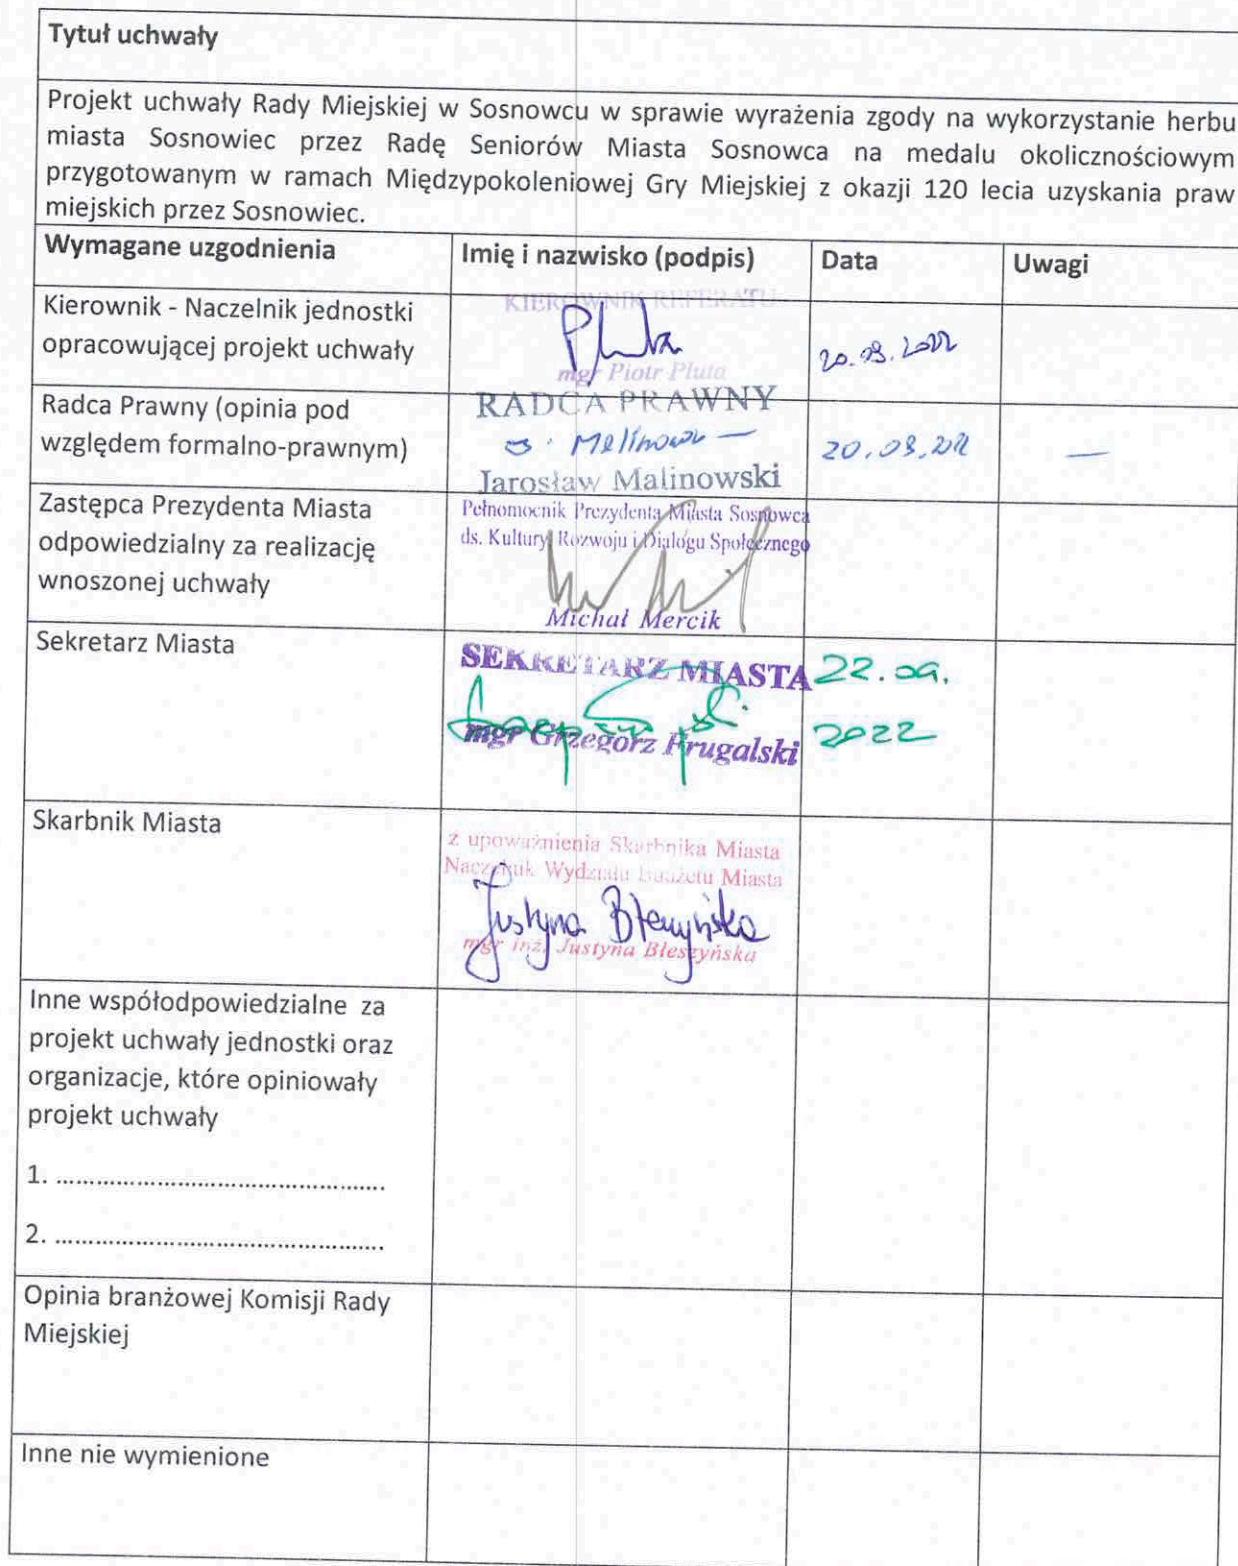 Tytuł uchwały
Projekt uchwały Rady Miejskiej w Sosnowcu w sprawie wyrażenia zgody na wykorzystanie herbu
miasta Sosnowiec przez Radę Seniorów Miasta Sosnowca na medalu okolicznościowym
przygotowanym w ramach Międzypokoleniowej Gry Miejskiej z okazji 120 lecia uzyskania praw
miejskich przez Sosnowiec.
Wymagane uzgodnienia Imię i nazwisko (podpis) Data Uwagi
Kierownik - Naczelnik jednostki
opracowującej projekt uchwały
KIEROWNIK REFERATU
Pluta
mgr Piotr Pluta
20.09.2022
Radca Prawny (opinia pod
względem formalno-prawnym)
RADCA PRAWNY
J. Malinowski
Jarosław Malinowski
20.09.22
—
Zastępca Prezydenta Miasta
odpowiedzialny za realizację
wnoszonej uchwały
Pełnomocnik Prezydenta Miasta Sosnowca
ds. Kultury, Rozwoju i Dialogu Społecznego
Michał Mercik
Sekretarz Miasta
SEKRETARZ MIASTA
mgr Grzegorz Frugalski
22.09.
2022
Skarbnik Miasta
z upoważnienia Skarbnika Miasta
Naczelnik Wydziału Budżetu Miasta
Justyna Błeszyńska
mgr inż. Justyna Błeszyńska
Inne współodpowiedzialne za
projekt uchwały jednostki oraz
organizacje, które opiniowały
projekt uchwały
1. ................................................
2. ................................................
Opinia branżowej Komisji Rady
Miejskiej
Inne nie wymienione